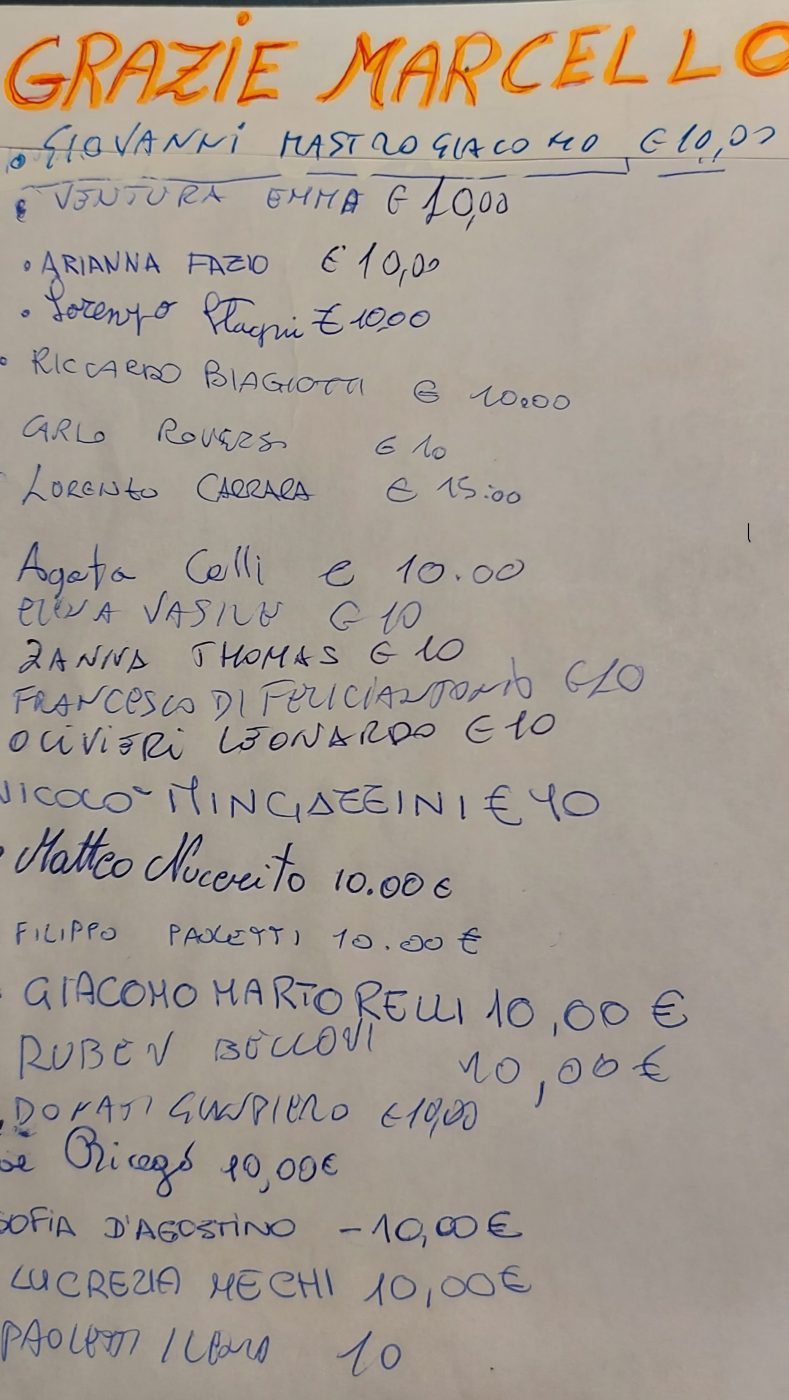 GRAZIE MARCELLO
• GIOVANNI MASTROGIACOMO € 10,00
• VENTURA EMMA € 10,00
• ARIANNA FAZIO € 10,00
• Lorenzo Stagni € 10,00
• RICCARDO BIAGIOTTI € 10.00
CARLO ROVERSI € 10
LORENZO CARRARA € 15:00
Agata Celli € 10.00
ELENA VASILE € 10
ZANNA THOMAS € 10
FRANCESCO DI FELICIANTONIO €10
OLIVIERI LEONARDO € 10
NICOLO' MINGAZZINI € 40
• Matteo Nucerito 10.00 €
FILIPPO PAOLETTI 10.00 €
• GIACOMO MARTORELLI 10,00 €
RUBEN BELLOVI 10,00 €
DONATI GIANPIERO €10,00
10,00€
SOFIA D'AGOSTINO - 10,00 €
LUCREZIA MECHI 10,00€
PAOLETTI 10